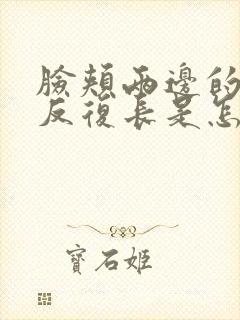 臉頰兩邊的
反復長是怎
寶石姬